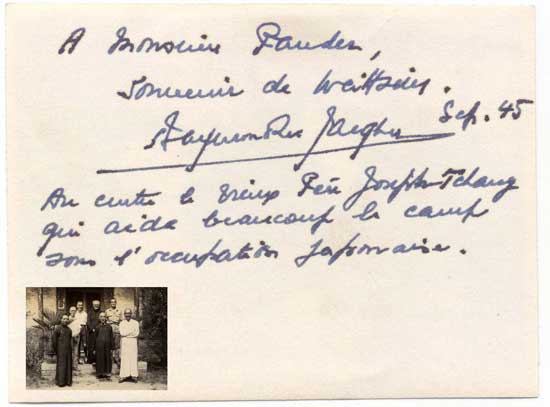 A Monsieur Pander,
Souvenir de Weihsien.
Sep. 45
Raymond de Jaegher
Au centre le vieux Père Joseph Tchang
qui aida beaucoup le camp
sous l'occupation Japonaise.